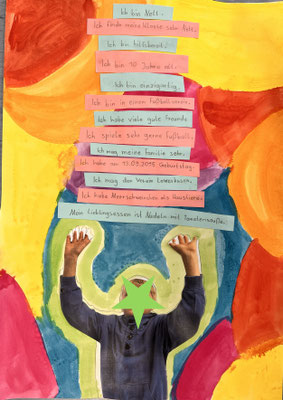 Ich bin Nett.
Ich finde meine Klasse sehr Nett.
Ich bin hilfsbereit.
Ich bin 10 Jahre alt.
Ich bin einzigartig.
Ich bin in einem Fußballverein.
Ich habe viele gute Freunde
Ich spiele sehr gerne Fußball.
Ich mag meine Familie sehr.
Ich habe am 13.03.2013 Geburtstag.
Ich mag den Verein Leverkusen.
Ich habe Meerschweinchen als Haustiere.
Mein Lieblingsessen ist Nudeln mit Tomatensoße.